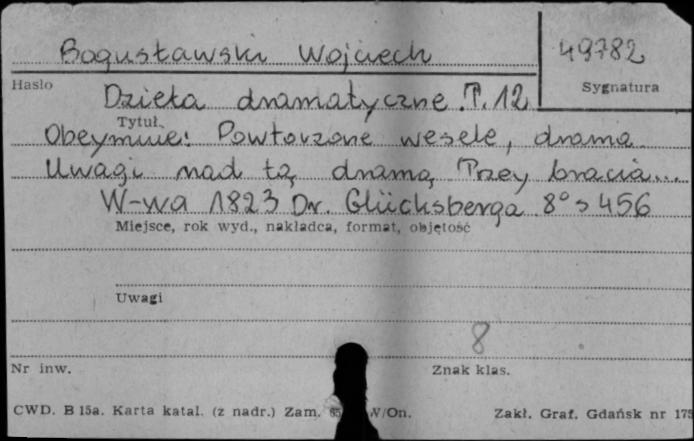 Bogusławski Wojciech
49782
Hasło
Sygnatura
Dzieła dramatyczne. T. 12
Tytuł
Obeymuie: Powtorzone wesele, drama
Uwagi nad tą dramą Trzey bracia...
W-wa 1823 Dr. Glücksberga 8° s 456
Miejsce, rok wyd., nakładca, format, objętość
Uwagi
8
Nr inw.
Znak klas.
CWD. B 15a. Karta katal. (z nadr.) Zam. W/On.
Zakł. Graf. Gdańsk nr 175